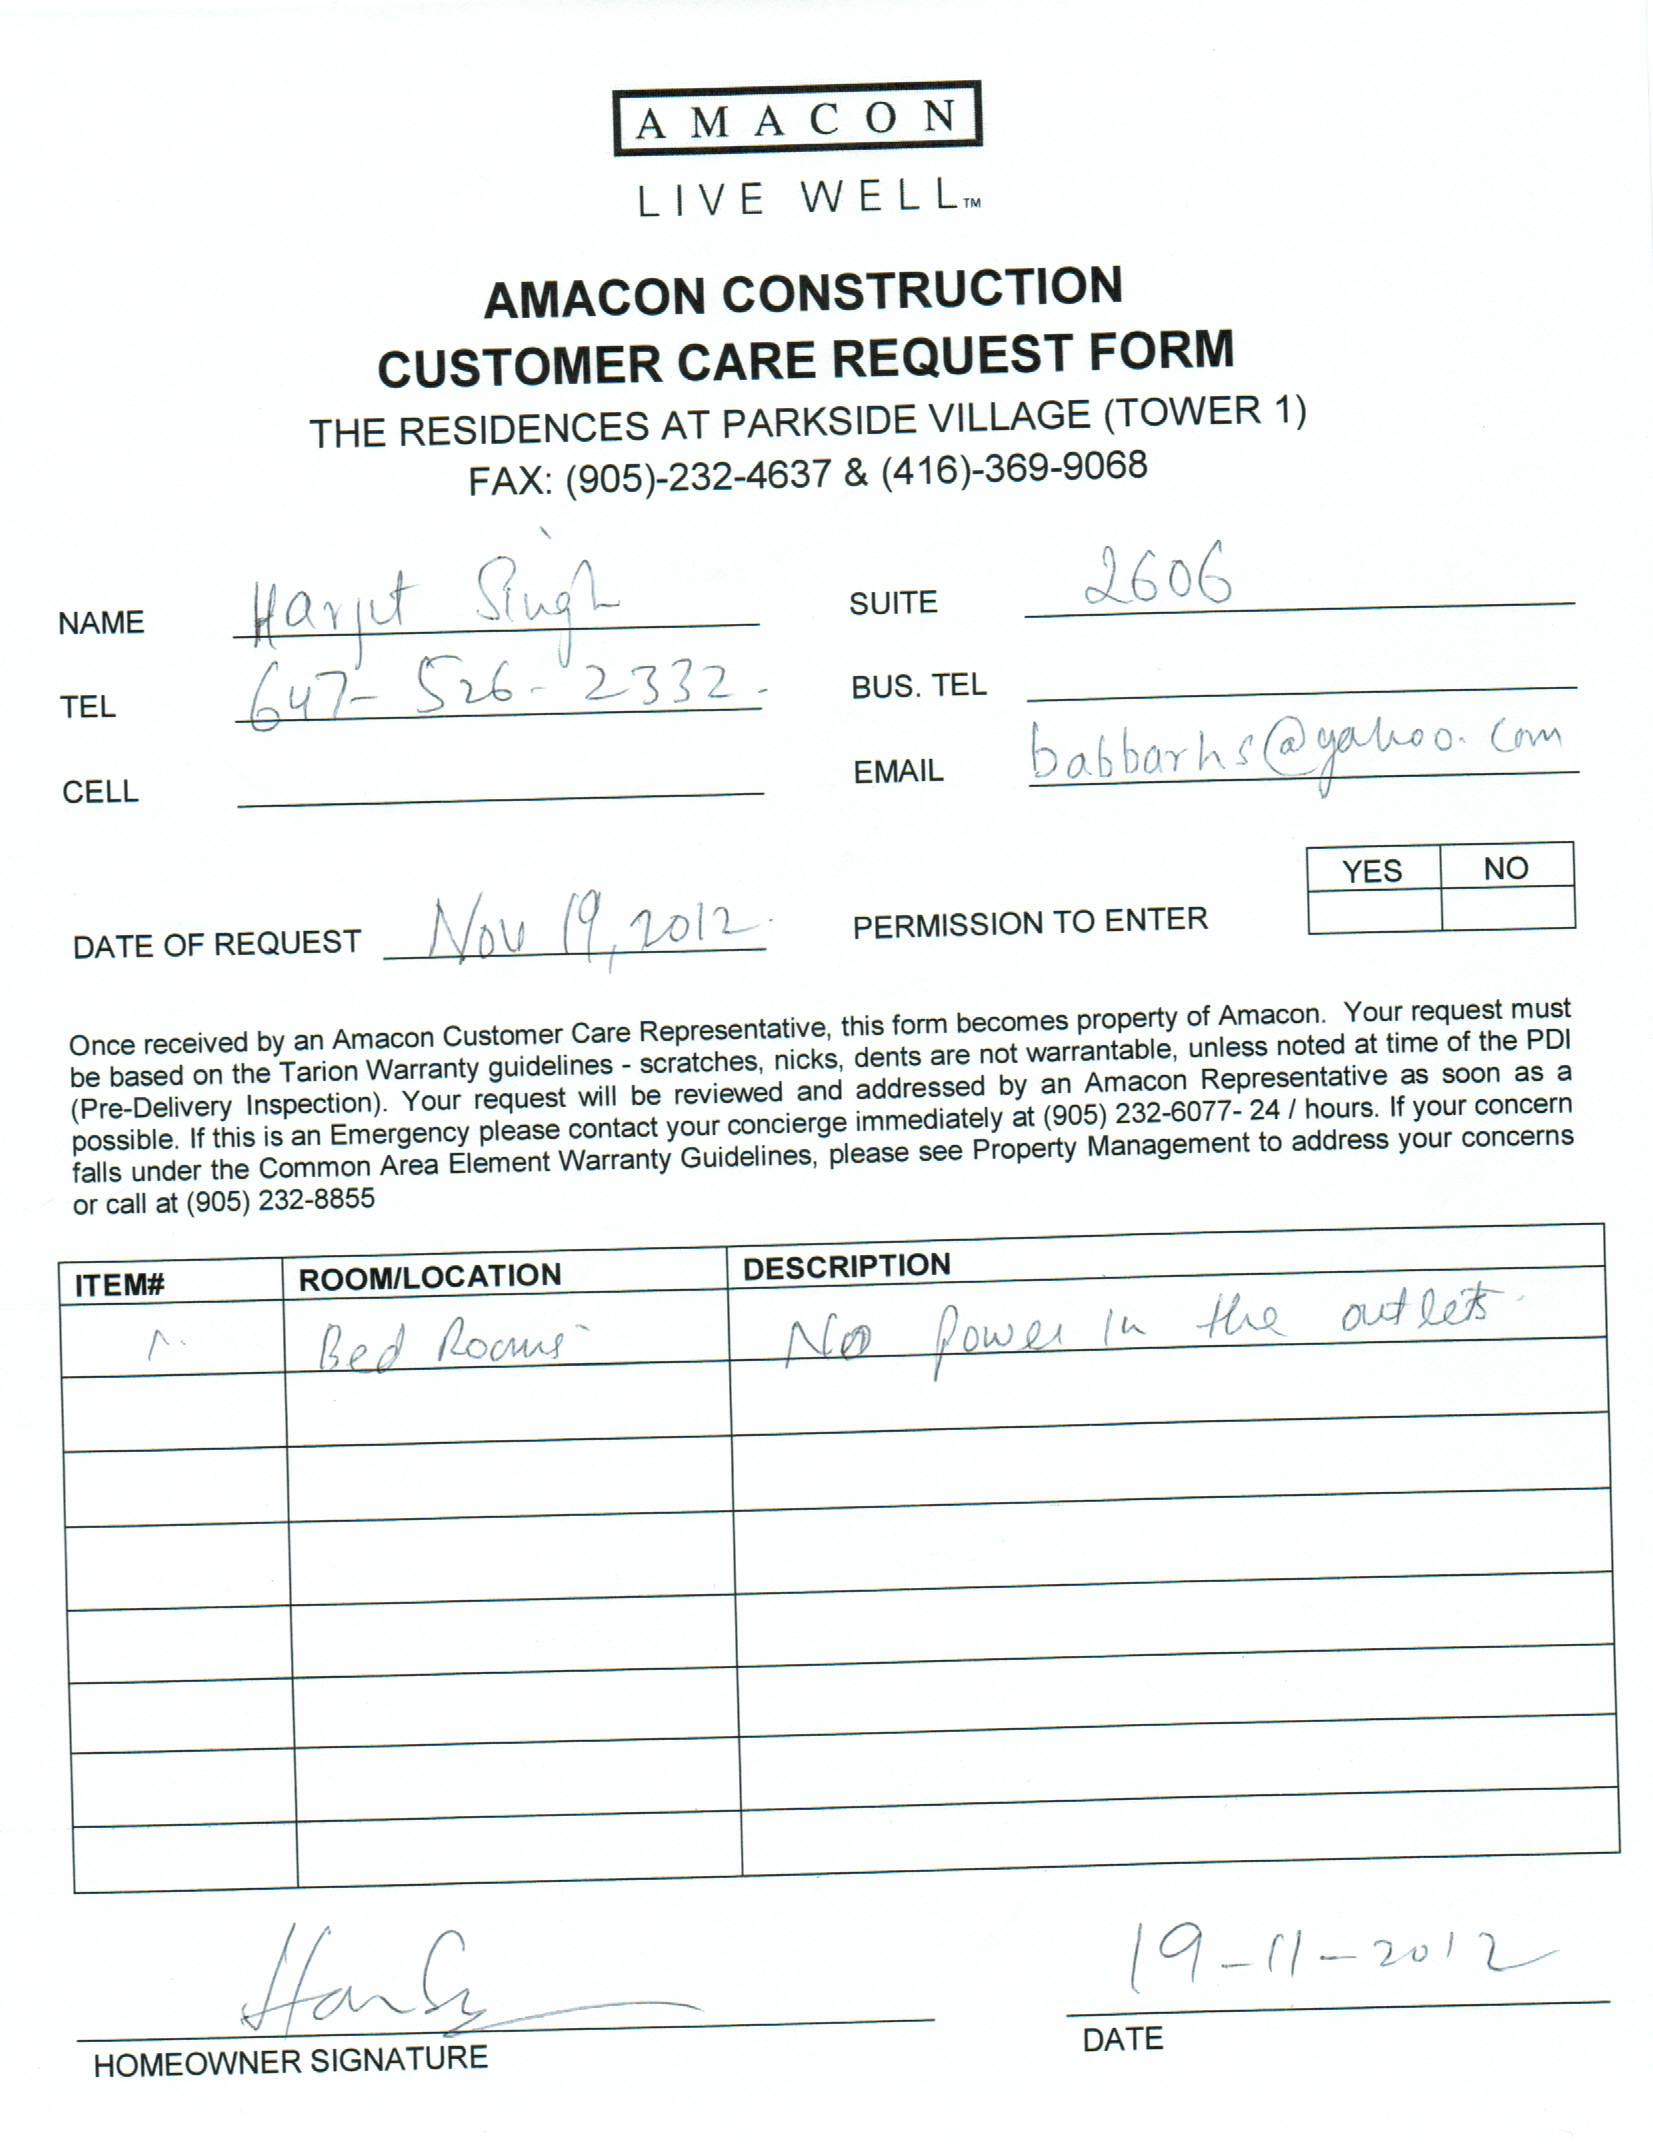 AMACON
LIVE WELL™
AMACON CONSTRUCTION
CUSTOMER CARE REQUEST FORM
THE RESIDENCES AT PARKSIDE VILLAGE (TOWER 1)
FAX: (905)-232-4637 & (416)-369-9068
NAME Harjit Singh SUITE 2606
TEL 647-526-2332. BUS. TEL
CELL EMAIL babbarhs@yahoo.com
YES NO
DATE OF REQUEST Nov 19, 2012. PERMISSION TO ENTER
Once received by an Amacon Customer Care Representative, this form becomes property of Amacon. Your request must
be based on the Tarion Warranty guidelines - scratches, nicks, dents are not warrantable, unless noted at time of the PDI
(Pre-Delivery Inspection). Your request will be reviewed and addressed by an Amacon Representative as soon as a
possible. If this is an Emergency please contact your concierge immediately at (905) 232-6077- 24 / hours. If your concern
falls under the Common Area Element Warranty Guidelines, please see Property Management to address your concerns
or call at (905) 232-8855
ITEM# ROOM/LOCATION DESCRIPTION
Bed Rooms No power in the outlets.
19-11-2012
HOMEOWNER SIGNATURE DATE